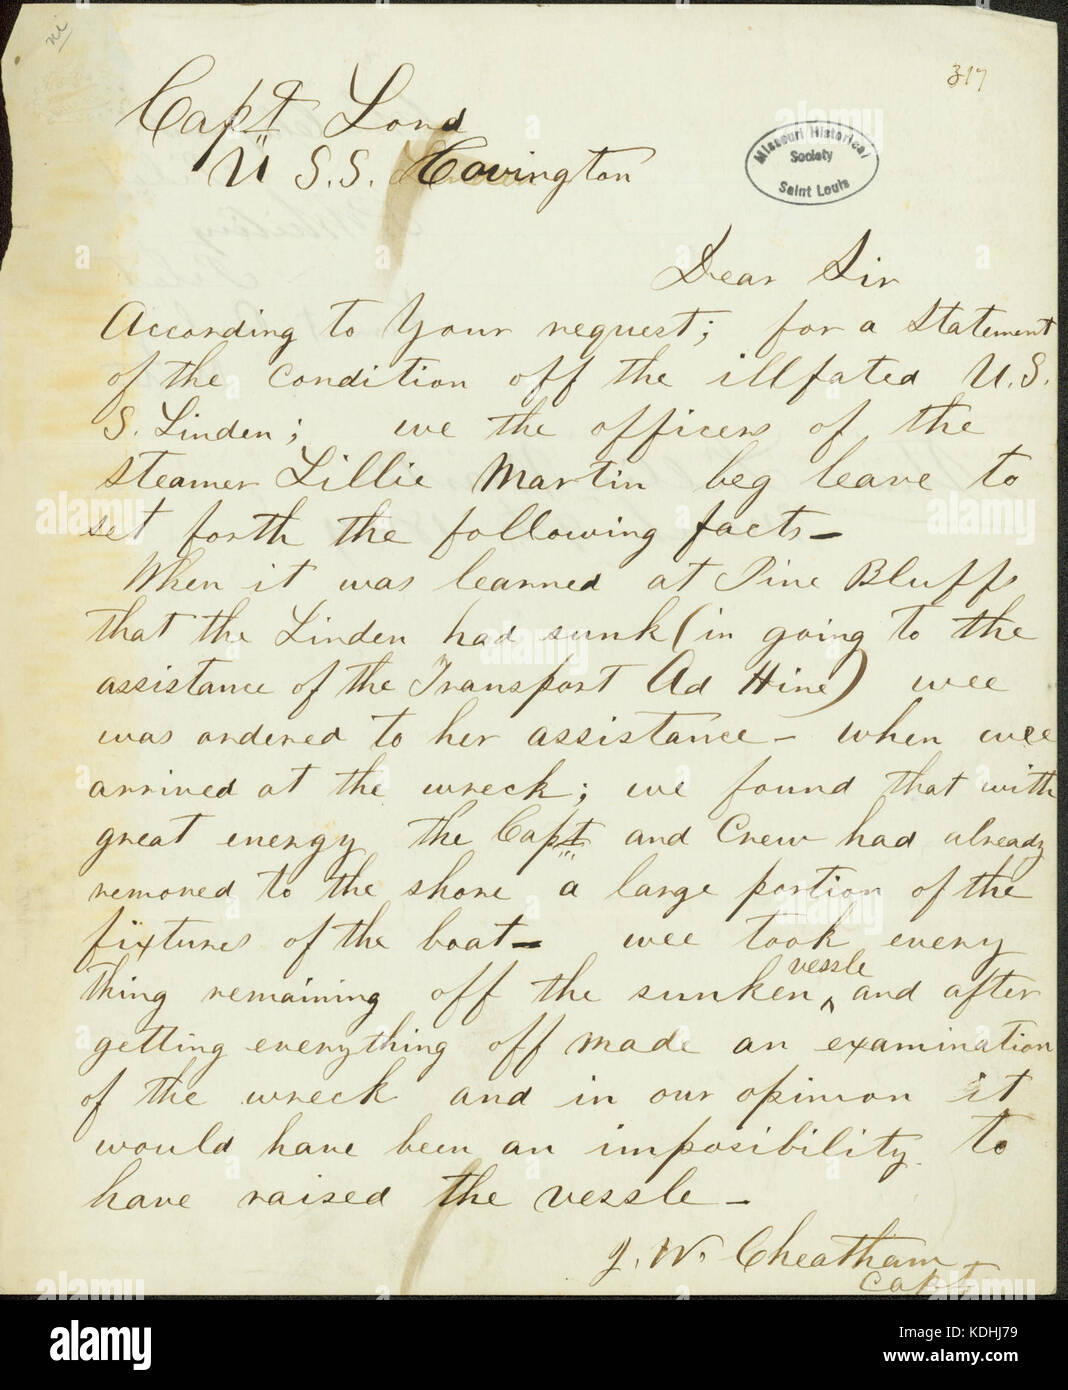 317
Capt Lord
U S.S. Covington
Missouri Historical
Society
Saint Louis
Dear Sir
According to Your request; for a Statement
of the condition off the illfated U.S.
S. Linden; we the officers of the
steamer Lillie Martin beg leave to
set forth the following facts—
When it was learned at Pine Bluffs
that the Linden had sunk (in going to the
assistance of the Transport Ad Hine) wee
was ordered to her assistance— when wee
arrived at the wreck; we found that with
great energy the Capt and Crew had already
removed to the shore a large portion of the
fixtures of the boat— wee took every
vessle
thing remaining off the sunken ^ and after
getting everything off made an examination
of the wreck and in our opinion it
would have been an imposibility. to
have raised the vessle—
J. W. Cheatham
Capt
alamy
Image ID: KDHJ79
www.alamy.com